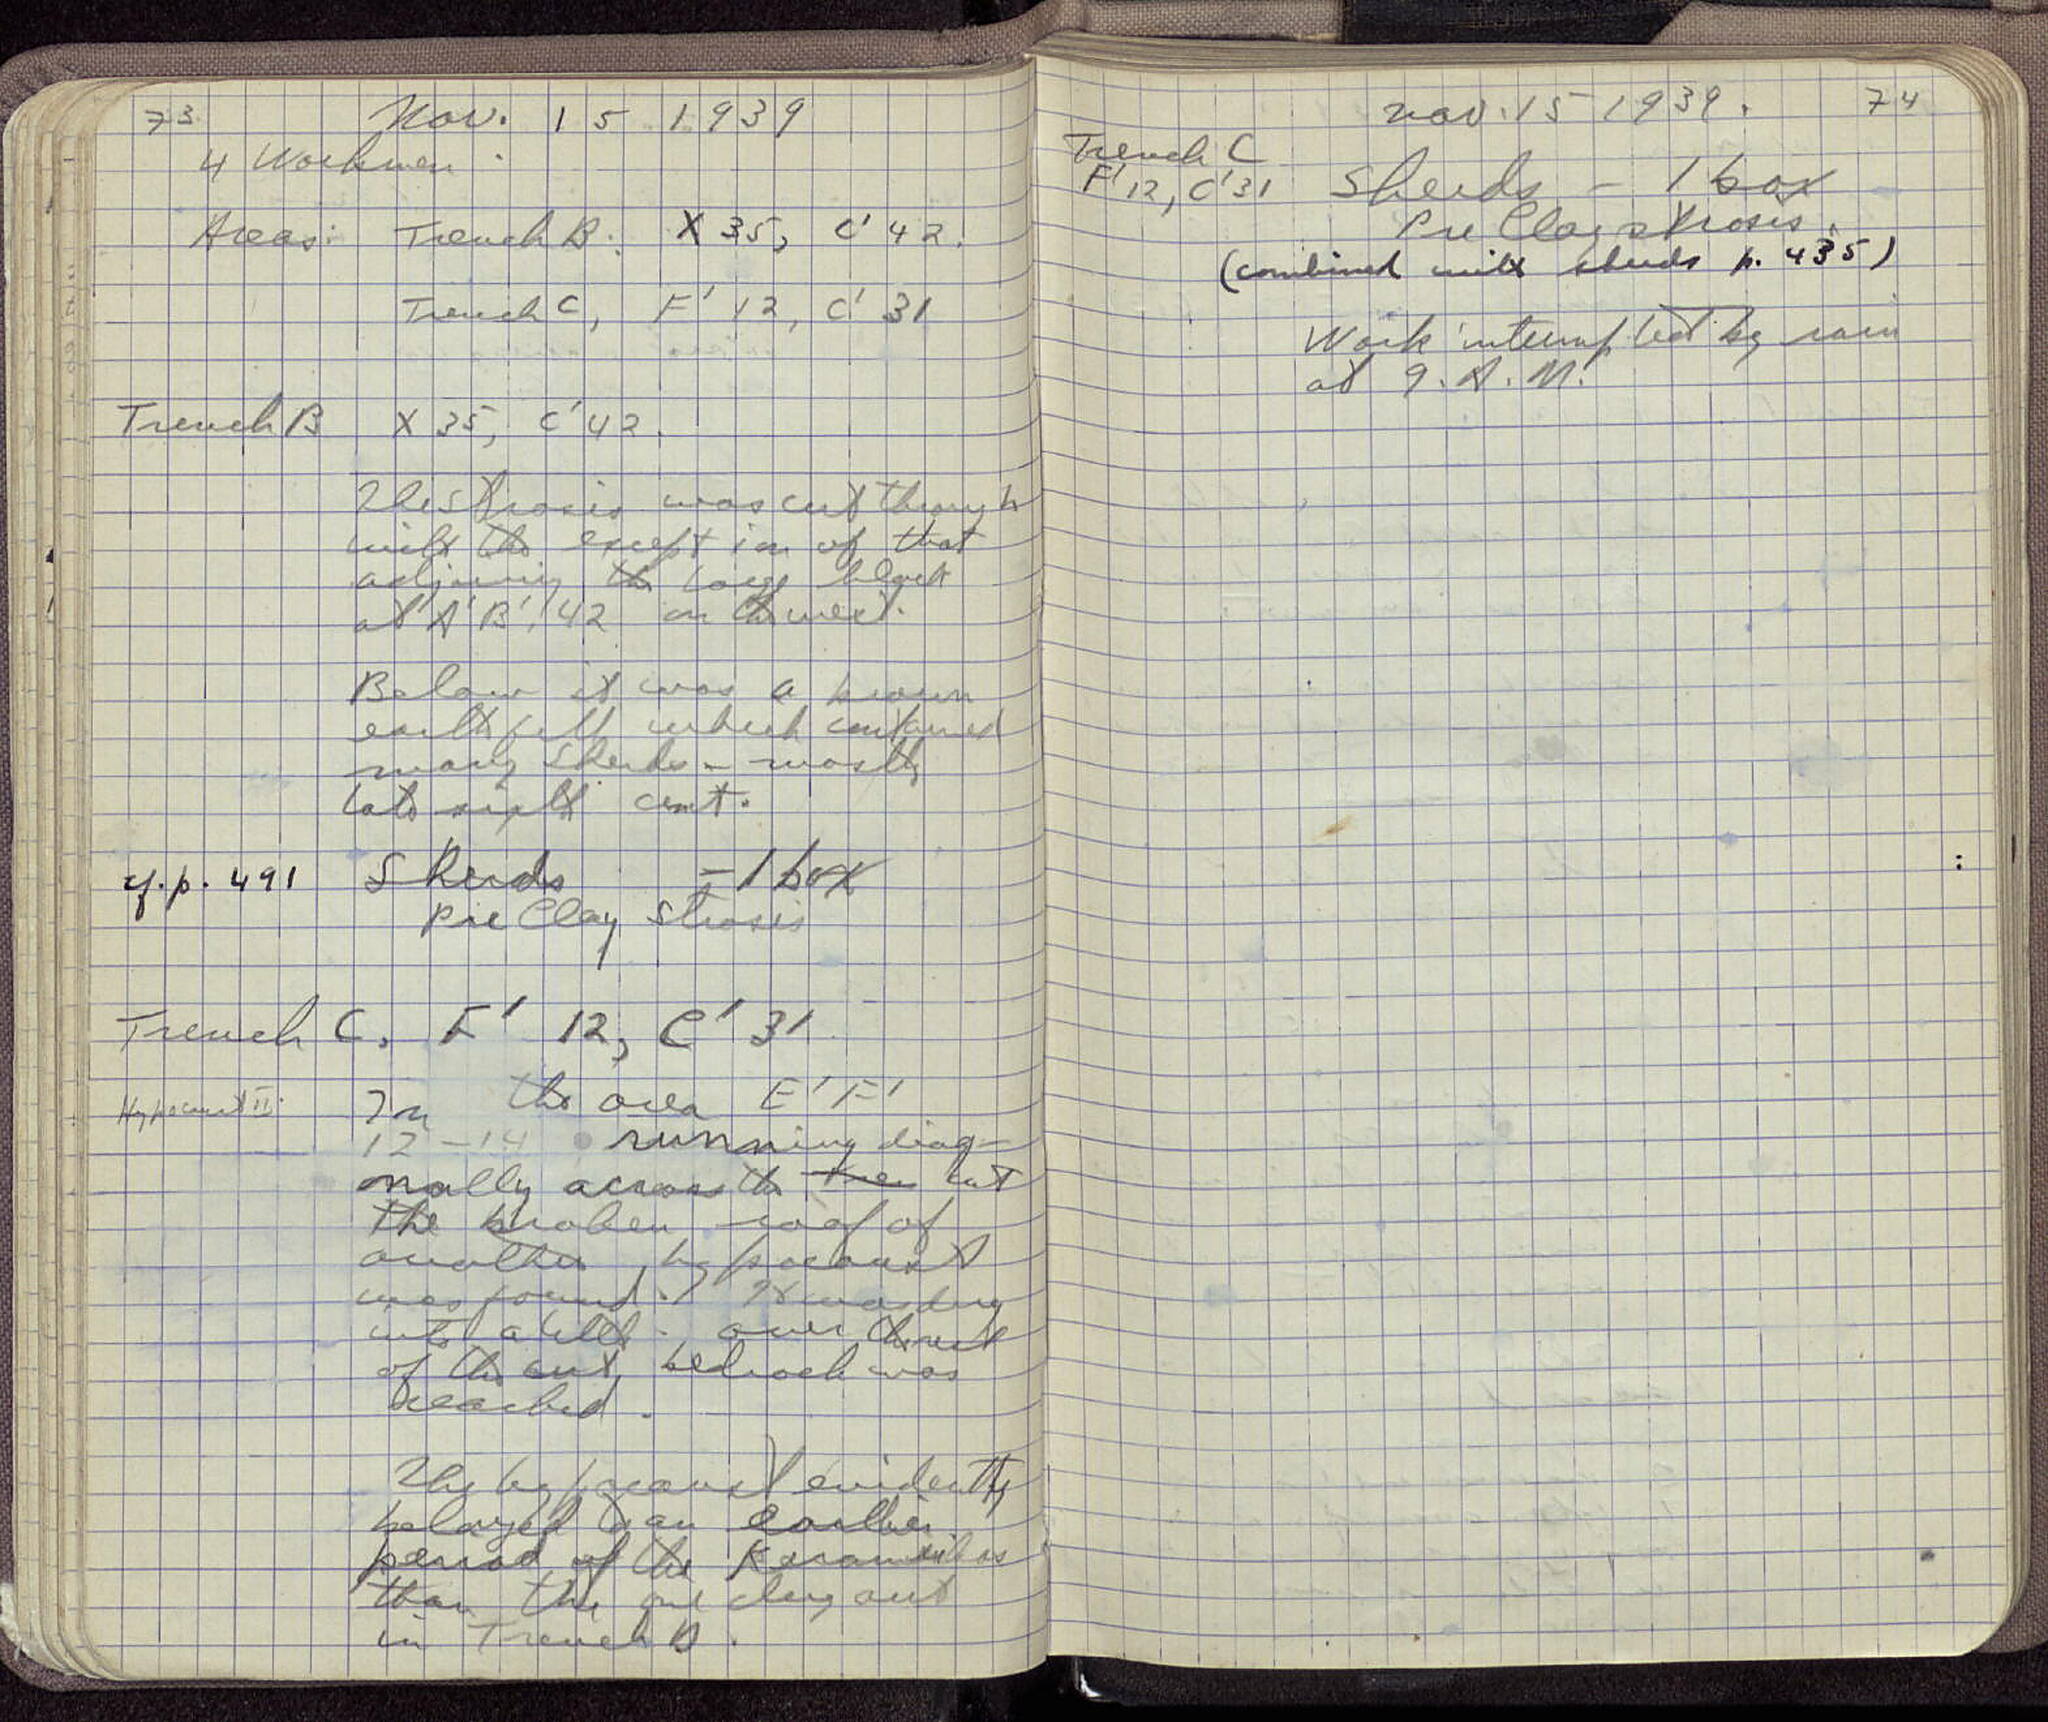 73 Nov. 15 1939
4 Workmen.
Areas: Trench B: X 35, C' 42.
Trench C, F' 12, C' 31
Trench B X 35, C' 42.
The Strosis was cut through
with the exception of that
adjoining the large block
at A' B', 42 on the west.
Below it was a brown
earth fill which contained
many sherds - mostly
late sixth cent.
cf. p. 491 Sherds - 1 box
Pre Clay Strosis
Trench C. F' 12, C' 31
Hypocaust II. In the area E' F'
12 - 14 running diag-
nally across the cut
the broken roof of
another hypocaust
was found. It was dug
into a . over the rest
of the cut, bedrock was
reached.
The hypocaust evidently
belonged to an earlier
period of the Kerameikos
than the one dug out
in Trench B.
nov. 15 1939. 74
Trench C
F' 12, C' 31 Sherds - 1 box
Pre Clay strosis.
(combined with sherds p. 435)
Work interrupted by rain
at 9. A. M.